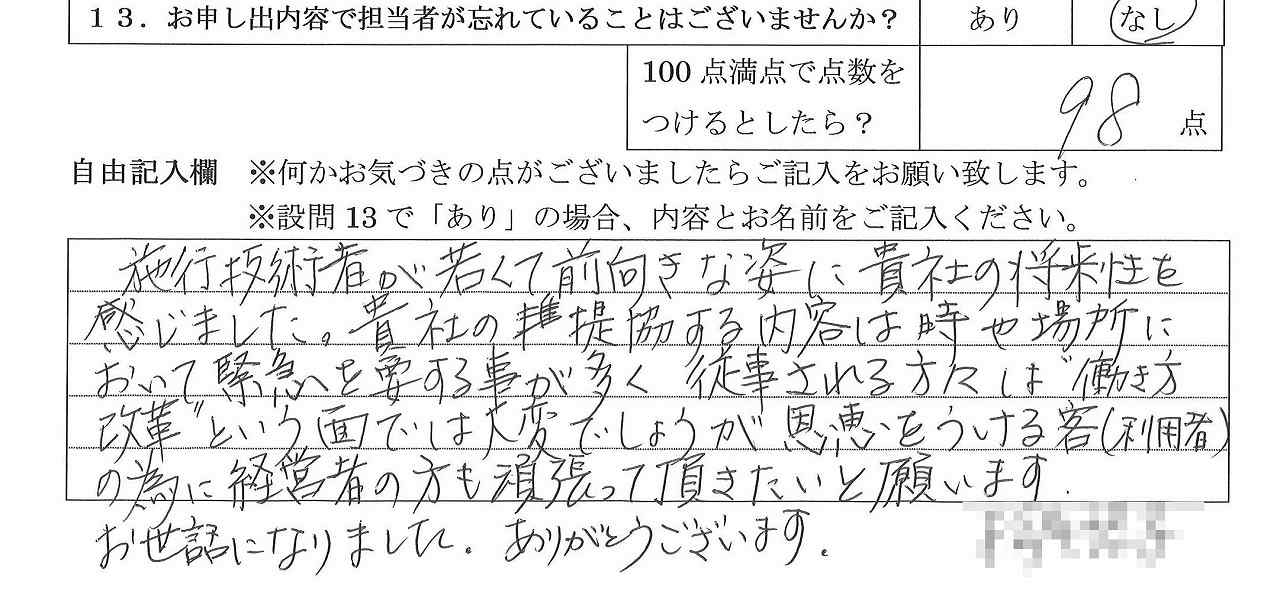 13．お申し出内容で担当者が忘れていることはございませんか？ あり なし
100点満点で点数を
つけるとしたら？ 98 点
自由記入欄 ※何かお気づきの点がございましたらご記入をお願い致します。
※設問13で「あり」の場合、内容とお名前をご記入ください。
施行技術者が若くて前向きな姿に貴社の将来性を
感じました。貴社の提協する内容は時や場所に
おいて緊急を要する事が多く 従事される方々は"働き方
改革"という面では大変でしょうが恩恵をうける客(利用者)
の為に経営者の方も頑張って頂きたいと願います.
お世話になりました. ありがとうございます.